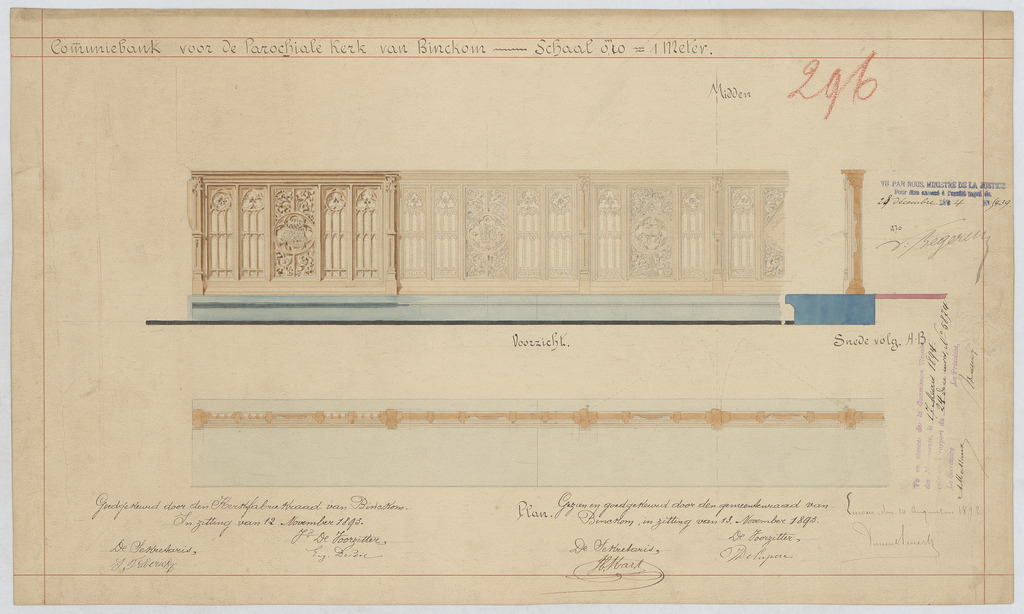 Com̄uniebank voor de Parochiale Kerk van Binckom — Schaal 0m10 = 1 Meter.
Midden
296
VU PAR NOUS, MINISTRE DE LA JUSTICE
Pour être annexé à l'arrêté royal du
28 décembre 1894
V. Begerem
Voorzicht.
Snede volg. A-B
Vu en séance de la Commission
17 Mars 1894
Le Secrétaire
Le Président,
Plan.
Goedgekeurd door den Kerkfabriekraad van Binckom.
In zitting van 12 November 1893.
De Sekretaris,
De Voorzitter,
Gezien en goedgekeurd door den gemeenteraad van
Binckom, in zitting van 13 November 1893.
De Sekretaris,
De Voorzitter,
H. Mart
Leuven, den 10 Augustus 1892